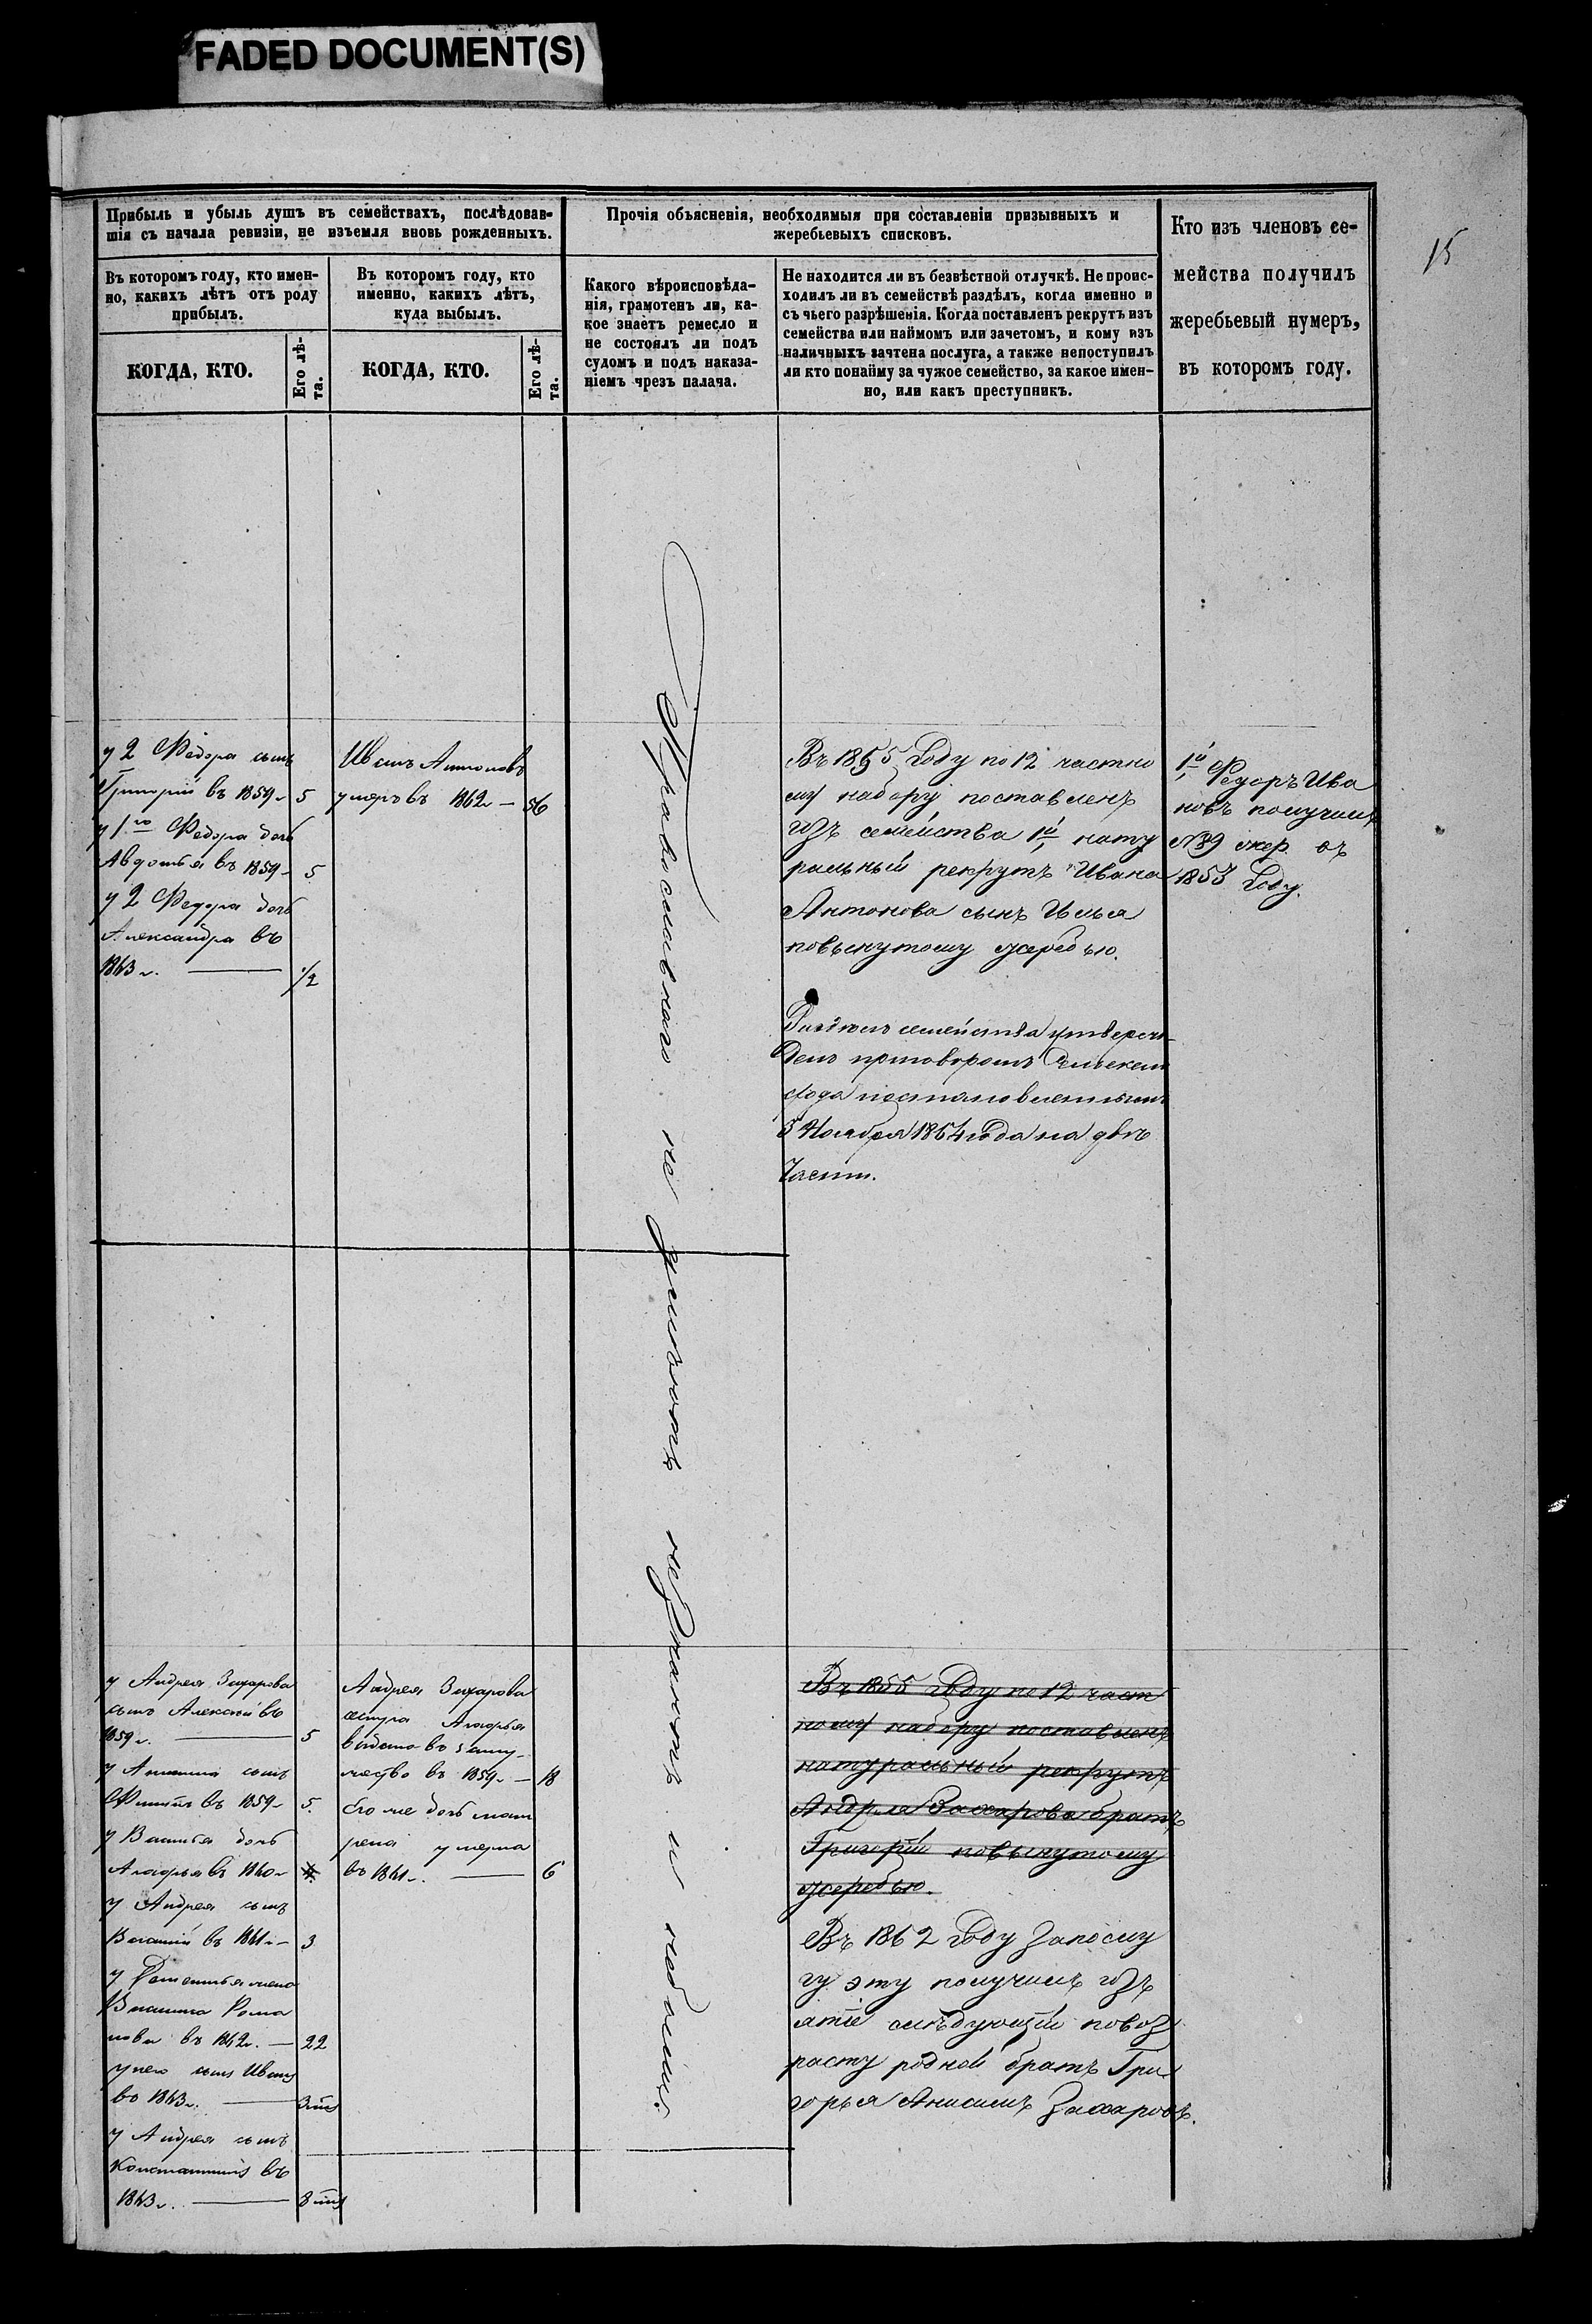 FADED DOCUMENT(S)
15
Прибыль и убыль душъ въ семействахъ, послѣдовав-
шія съ начала ревизіи, не изъемля вновь рожденныхъ.
Въ которомъ году, кто имен-
но, какихъ лѣтъ отъ роду
прибылъ.
КОГДА, КТО.
Его лѣ-
та.
Въ которомъ году, кто
именно, какихъ лѣтъ,
куда выбылъ.
КОГДА, КТО.
Его лѣ-
та.
Прочія объясненія, необходимыя при составленіи призывныхъ и
жеребьевыхъ списковъ.
Какого вѣроисповѣда-
нія, грамотенъ ли, ка-
кое знаетъ ремесло и
не состоялъ ли подъ
судомъ и подъ наказа-
ніемъ чрезъ палача.
Не находится ли въ безвѣстной отлучкѣ. Не проис-
ходилъ ли въ семействѣ раздѣлъ, когда именно и
съ чьего разрѣшенія. Когда поставленъ рекрутъ изъ
семейства или наймомъ или зачетомъ, и кому изъ
наличныхъ зачтена послуга, а также непоступилъ
ли кто понайму за чужое семейство, за какое имен-
но, или какъ преступникъ.
Кто изъ членовъ се-
мейства получилъ
жеребьевый нумеръ,
въ которомъ году.
у 2 Федора сынъ
Григорій въ 1859 г. 5
у 1го Федора дочь
Авдотья въ 1859 5
у 2 Федора дочь
Александра въ
1863 г. — 1/2
Иванъ Антоновъ
умеръ въ 1862 г. — 56
Православнаго не
Въ 1855 Году по 12 частно
му набору поставленъ
изъ семейства 1й нату
ральный рекрутъ Ивана
Антонова сынъ Илья
повынутому жеребью.
Раздѣлъ семейства утверж-
денъ приговоромъ Сельскаго
схода постановленнымъ
5 Ноября 1864 года на двѣ
части.
1й Федоръ Ива
новъ получилъ
№39 жер. въ
1853 Году.
у Андрея Захарова
сынъ Алексѣй въ
1859 г. — 5
у Анисима сынъ
въ 1859 5.
у Василья дочь
въ 1860 г.
у Андрея сынъ
Василій въ 1861 г. — 3
нова въ 1862 г. — 22
у него сынъ Иванъ
въ 1863 г. —
у Андрея сынъ
Константинъ въ
1863 г. —
Андрея Захарова
сестра
выдана въ заму-
жество въ 1859 г. — 18
Его же дочь Мат
рена умерла
въ 1861 г. — 6
Въ 1855 Году по 12 част
ному набору поставленъ
натуральный рекрутъ
Андрея Захарова братъ
Григорій повынутому
жеребью.
Въ 1862 Году Запослу
гу эту получилъ изъ
ятіе слѣдующій повоз
расту родной братъ Гри
горья Анисимъ Захаровъ.